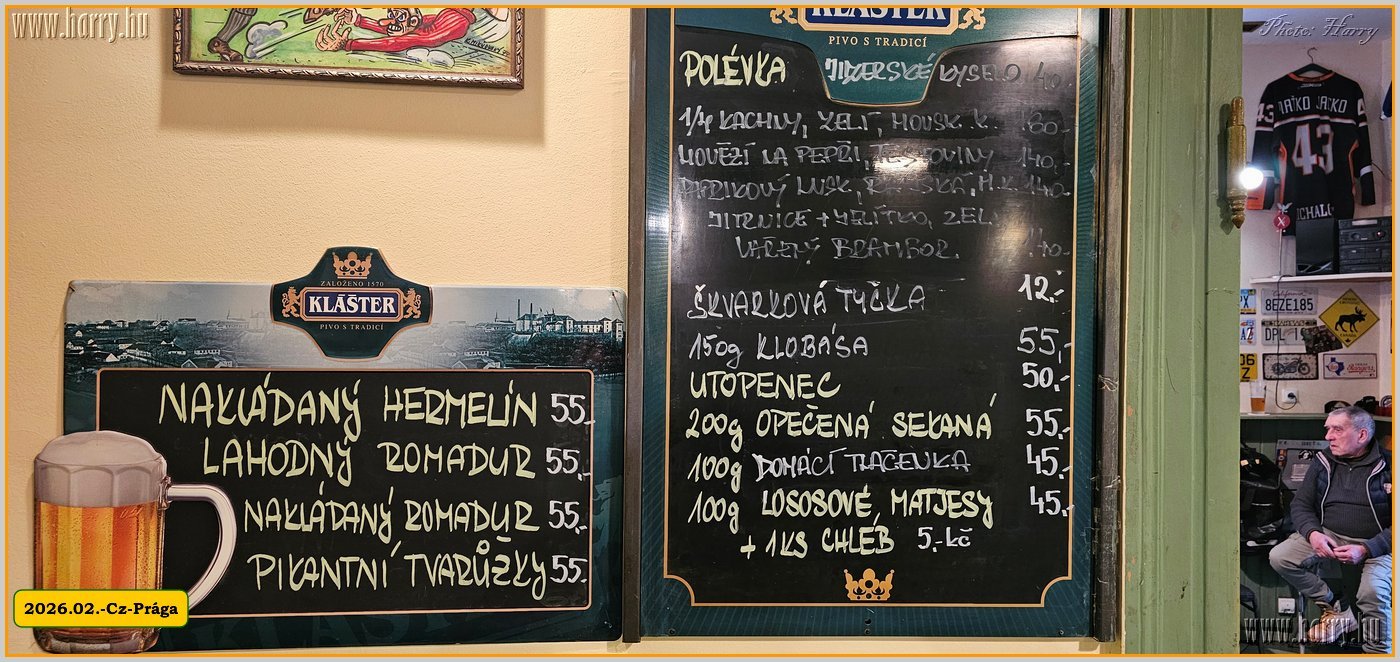 www.horry.hu
Photo: Horry
KLÁŠTER
PIVO S TRADICÍ
POLÉVKA JIZERSKÉ KYSELO 40,-
1/4 KACHNY, ZELÍ, HOUSK. K.
HOVĚZÍ NA PEPŘI, TĚSTOVINY 140,-
PAPRIKOVÝ LUSK, RAJSKÁ, H.K. 140.-
JITRNICE + JELÍTKO, ZELÍ
VAŘENÝ BRAMBOR.
ŠKVARKOVÁ TYČKA 12.-
150g KLOBÁSA 55,-
UTOPENEC 50,-
200g OPEČENÁ SEKANÁ 55,-
100g DOMÁCÍ TLAČENKA 45,-
100g LOSOSOVÉ MATJESY 45,-
+ 1KS CHLÉB 5,-kč
ZALOŽENO 1570
KLÁŠTER
PIVO S TRADICÍ
NAKLÁDANÝ HERMELÍN 55,-
LAHODNÝ ROMADUR 55,-
NAKLÁDANÝ ROMADUR 55,-
PIKANTNÍ TVARŮŽKY 55,-
43
43
California
8EZE185
DPL
Rangers
2026.02.-Cz-Prága
www.horry.hu